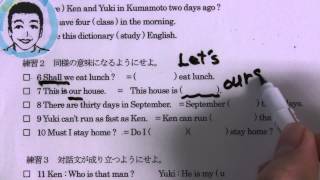 ) Ken and Yuki in Kumamoto two days ago ?
ave four ( class ) in the morning.
e this dictionary ( study ) English.
練習2 同様の意味になるようにせよ。
Let's
□ 6 Shall we eat lunch ? = ( ) eat lunch.
ours
□ 7 This is our house. = This house is ( ).
□ 8 There are thirty days in September. = September ( ) t days.
□ 9 Yuki can't run as fast as Ken. = Ken can run ( ) tha
□ 10 Must I stay home ? = Do I ( )( ) stay home ?
練習3 対話文が成り立つようにせよ。
□ 11 Ken : Who is that man ? Yuki : He is my ( u